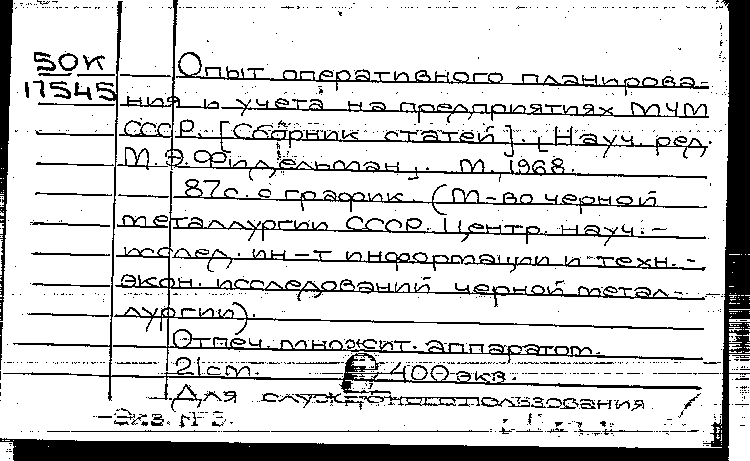 50К
17545
Опыт оперативного планирова-
ния и учета на предприятиях МЧМ
СССР. [Сборник статей]. [Науч. ред.
М. Э. Фидельман]. М., 1968.
87с. с график. (М-во черной
металлургии СССР. Центр. науч.-
исслед. ин-т информации и техн.-
экон. исследований черной метал-
лургии).
Отпеч. множит. аппаратом.
21см. 400 экз.
Для служебного пользования
Экз. № 3.